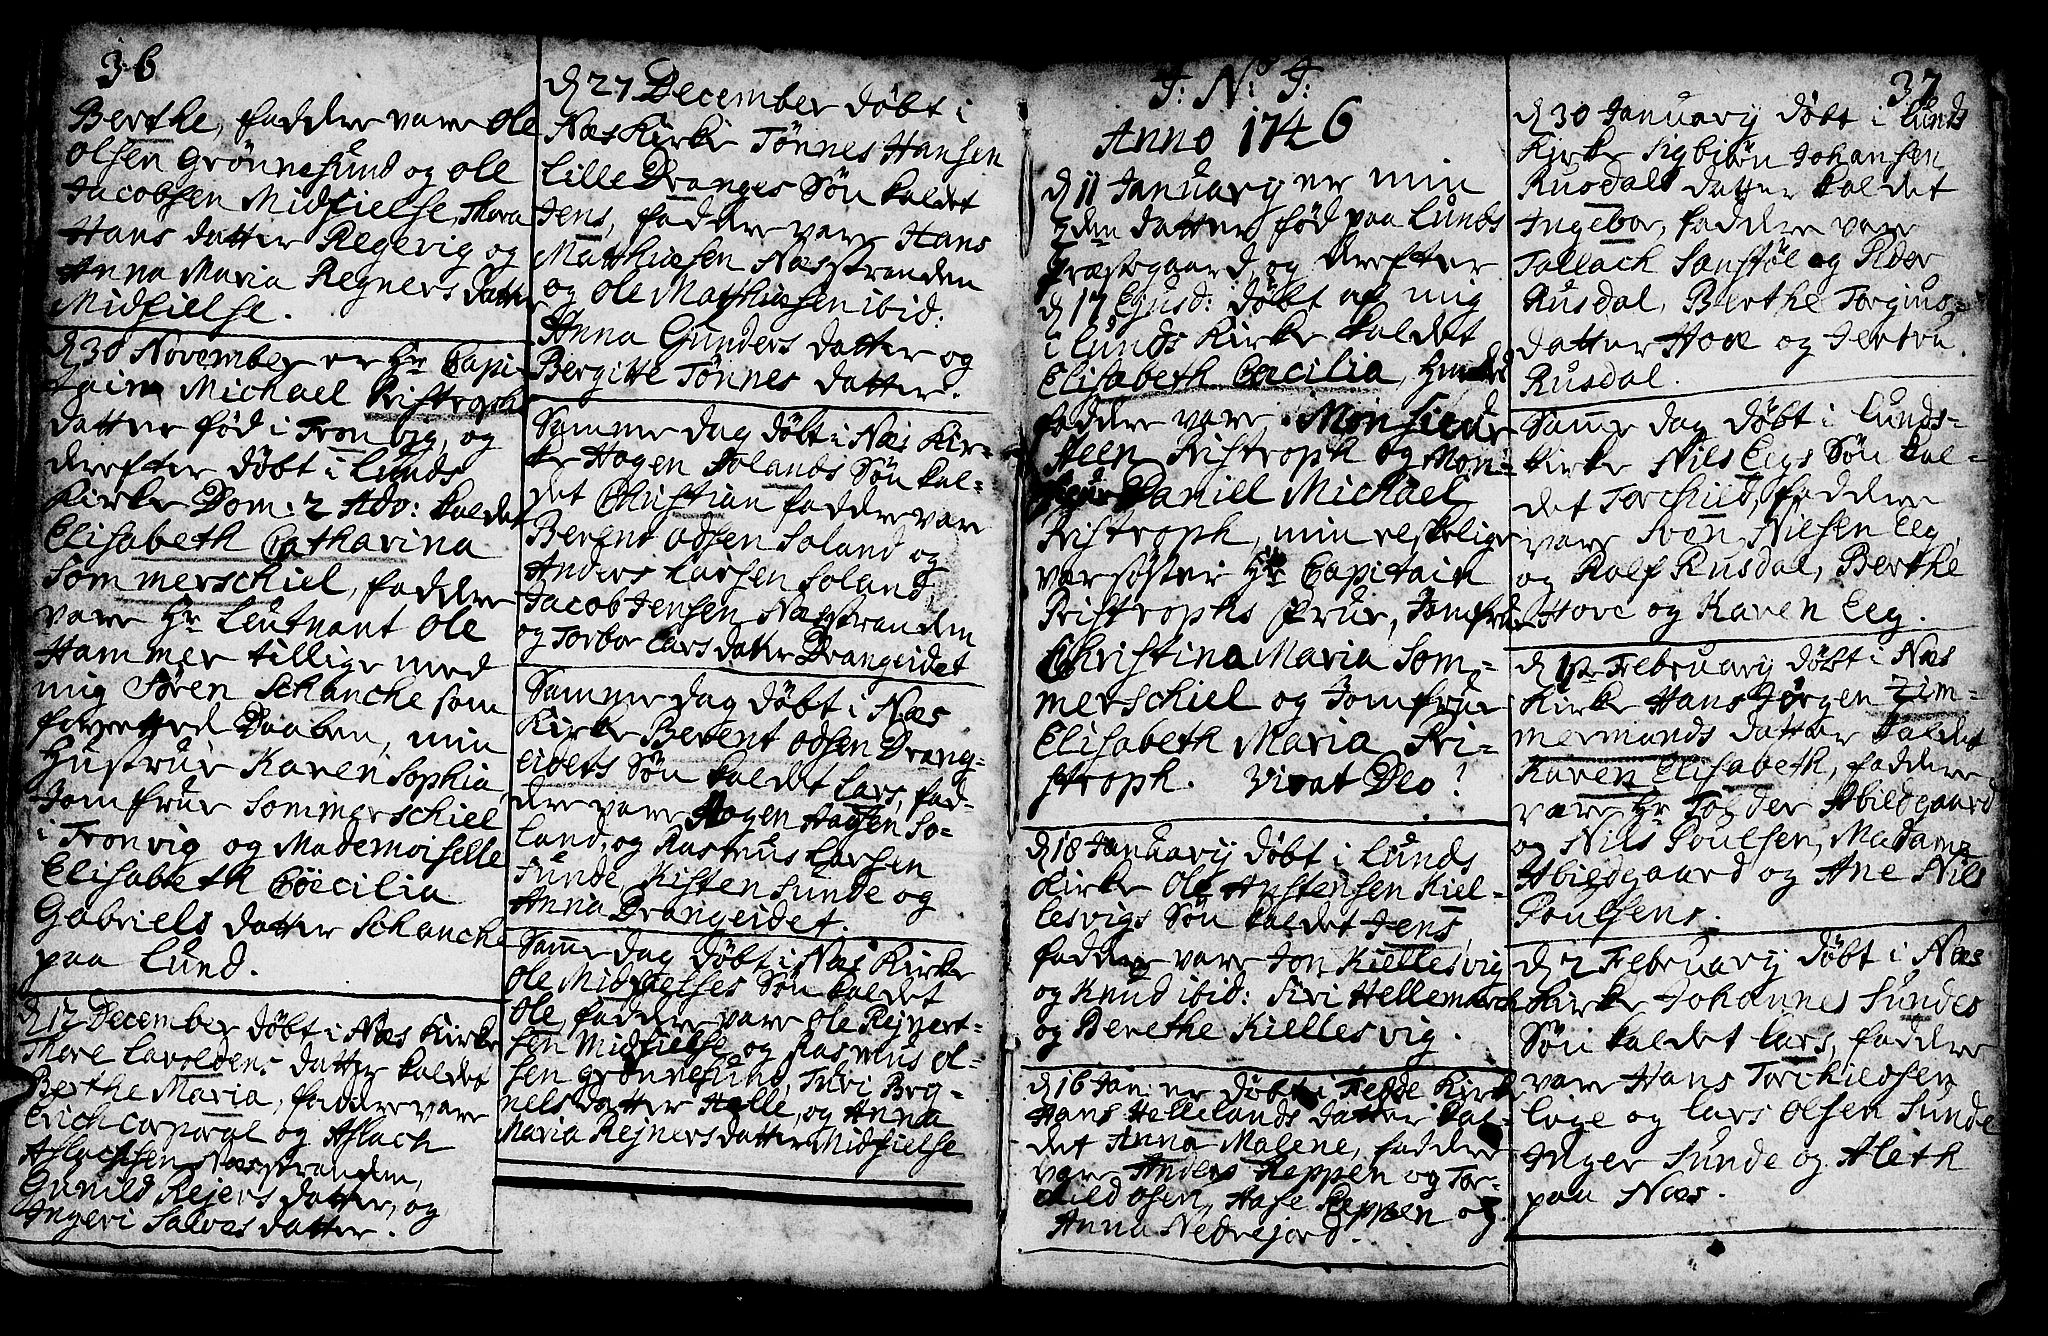 36
Berthe, faddre vare Ole
Olsen Grönnesund og Ole
Jacobsen Midsielse, Thora
Hans datter Regevig og
Anna Maria Regners datter
Midsielse.
d 30 November er Hr Capi
tain Michael Ristrophs
datter föd i Tronvig, og
derefter döbt i Lunds
Kirke Dom: 2 Adv: kaldet
Elisabeth Catharina
Sommerschiel, faddre
vare Hr Leutnant Ole
Hammer tillige med
mig Sören Schanche som
forretted Daaben, min
Hustrue Karen Sophia,
Jomfrue Sommerschiel
i Tronvig og Mademoiselle
Elisabeth Cœcilia
Gabriels datter Schanche
paa Lund.
d 12 December döbt i Næs Kirke
Thore datter kaldet
Berthe Maria, faddre vare
Erich Corporal og Aslach
Aslachsen Næsstranden,
Gunild Rejers datter, og
Ingeri Salves datter.
d 27 December döbt i
Næs Kirke Tönnes Hansen
Lille Dranges Sön kaldet
Jens, faddre vare Hans
Matthiesen Næsstranden
og Ole Matthiesen ibid:
Anna Gunders datter og
Bergitte Tönnes datter.
Samme dag döbt i Næs Kir-
ke Hogen Solands Sön kal-
det Christian faddre vare
Berent Odsen Soland og
Anders Larsen Soland,
Jacob Jensen Næsstranden
og Torbor Lars datter Drangeidet
Samme dag döbt i Næs
Kirke Berent Odsen Drang-
eidets Sön kaldet Lars, fad-
dre vare Hogen Hansen So-
land, og Rasmus Larsen
Sunde, Kisten Sunde og
Anna Drangeidet.
Samme dag döbt i Næs Kirke
Ole Midsielses Sön kaldet
Ole, faddre vare Ole Rejnert-
sen Midsielse og Rasmus Ol-
sen Grönnesund, Turi Beg-
nels datter Helle, og Anna
Maria Rejners datter Midsielse
J: N: J:
Anno 1746
d 11 January er min
datter föd paa Lunds
Præstegaard, og derefter
d 17 Ejusd: döbt af mig
i Lunds Kirke kaldet
Elisabeth Cœcilia, hendes
faddre vare Monsieur
Steen Ristroph og Mon-
sieur Daniel Michael
Ristroph, min elskelige
værsöster Hr Capitain
Ristrophs Frue, Jomfrue
Christina Maria Som-
merschiel og Jomfrue
Elisabeth Maria Ri-
stroph. Vivat Deo!
d 18 January döbt i Lunds
Kirke Ole Austensen Kiel-
lesvigs Sön kaldet Jens,
faddre vare Jon Kiellesvig
og Knud ibid: Siri Hellemarch
og Berethe Kiellesvig.
d 16 Jan: er döbt i Fedde Kirke
Hans Hellelands datter kal-
det Anna Malene, faddre
vare Anders Reppen og Tor-
kild Osen, Aase Reppen og
Anna Nedrejord.
37
d 30 January döbt i Lunds
Kirke Sigbiön Johansen
Rusdals datter kaldet
Ingebor, faddre vare
Tallach Sanstöl og Peder
Rusdal, Berthe Torgius-
datter Hove og Jertru
Rusdal.
Samme dag döbt i Lunds-
kirke Nils Eegs Sön kal-
det Torchild, faddre
vare Sven Nilsen Eeg,
og Rolf Rusdal, Berthe
Hove og Karen Eeg.
d 1ste February döbt i Næs
Kirke Hans Jörgen Zim-
mermands datter kaldet
Karen Elisabeth, faddre
være Hr Tolder Abildgaard
og Nils Poulsen, Madame
Abildgaard og Ane Nils
Poulsens.
d 2 February döbt i Næs
Kirke Johannes Sundes
Sön kaldet Lars, faddre
vare Hans Torchildsen
Loge og Lars Olsen Sunde
Inger Sunde og Aleth
paa Næs.